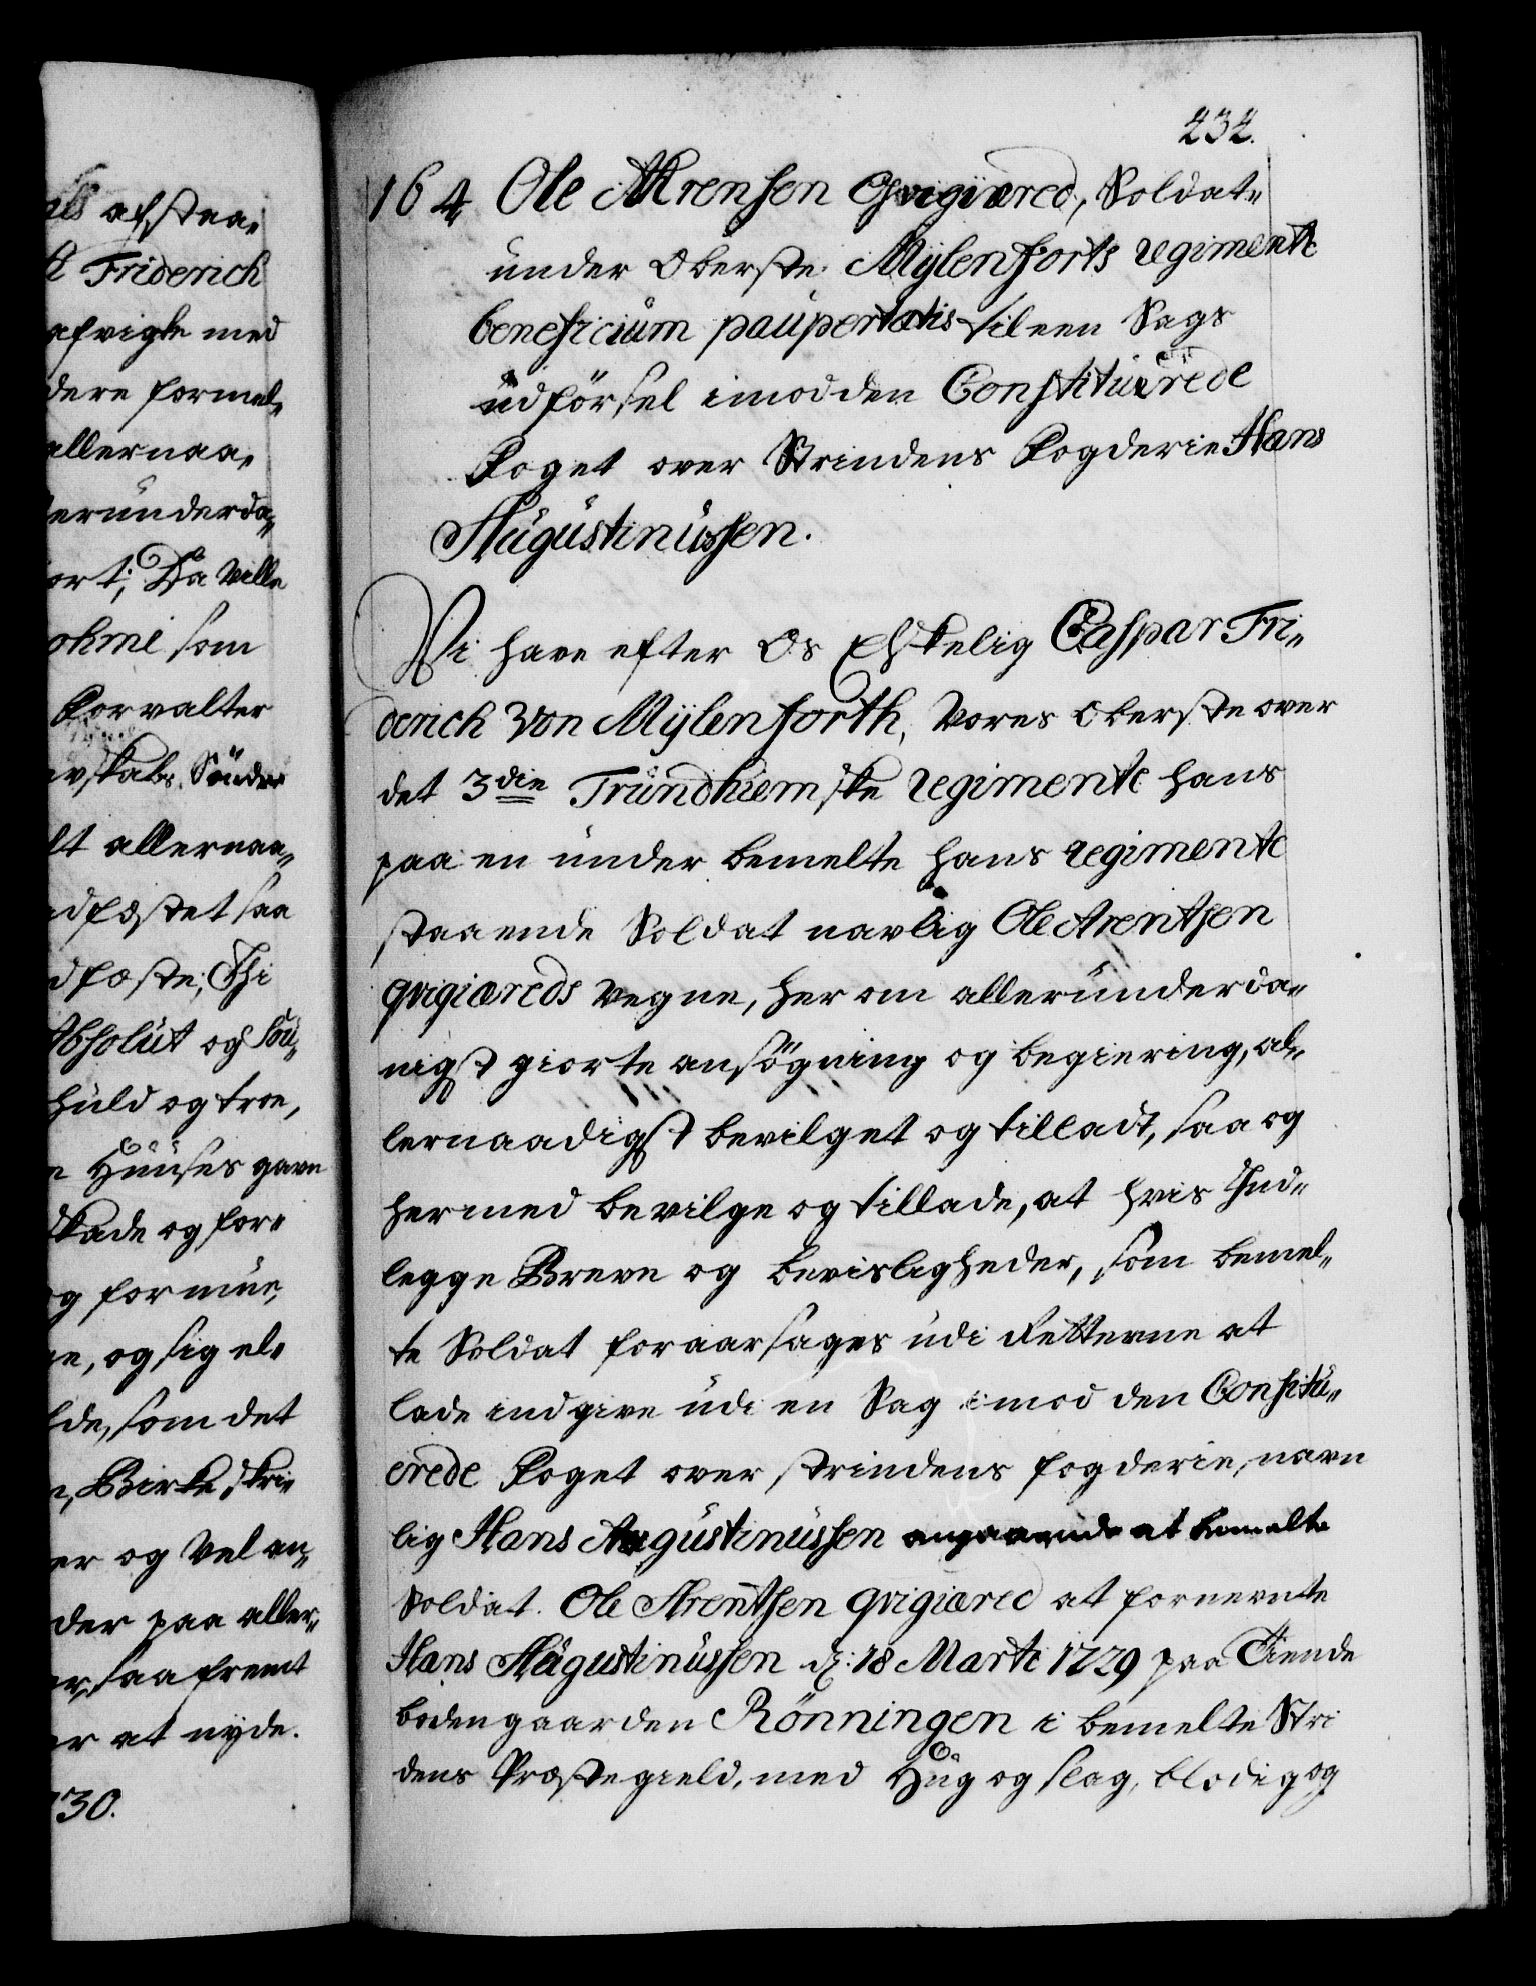 als afstea„
Friderich
afvigte med
dere formel„
allernaa„
eründerda„
ort; Da Ville
ohmi som
Forvalter
skabs Sönder
lt allernaa„
dfæstet saa
dfæste; Thi
Absolüt og Soü„
hüld og troe,
Hüüses gavn
skade og for„
og formüe,
ne, og sig el„
lde, som det
Birke skri„
er og Vel an„
der paa aller„
er, saafremt
er at nÿde.
730.
232.
164 Ole Arensen Qvigiæred, Soldat„
ünder Oberste Mÿlenforts regimente
beneficiüm paüpertatis til een Sags
üdförsel imod den Constitüerede
Foget over Strindens Fogderie Hans
Aügüstinüssen.
Vi have efter Os Elskelig Caspar Fri„
derich Von Mÿlenforth, Vores Oberste over
det 3die Tründhiemske regimente hans
paa en ünder bemelte hans regimente
staaende Soldat navlig Ole Arentsen
qvigiæreds Vegne, her om alleründerda„
nigst giorte ansögning og begiering, al„
lernaadigst bevilget og tilladt, saa og
hermed bevilge og tillade, at hvis Ind„
legge Breve og bevisligheder, som bemel„
te Soldat foraarsages üdi Retterne at
lade indgive üdi en Sag imod den Constitü„
erede Foget over strindens fogderie, navn
lig Hans Aügüstinüssen angaaende at bemelte
Soldat Ole Arentsen qvigiæred at fornevnte
Hans Aügüstinüssen d: 18 Marti 1729 paa Tiende
boden gaarden Rönningen i bemelte Stri
dens Præstegield, med Hüg og slag, blodig og